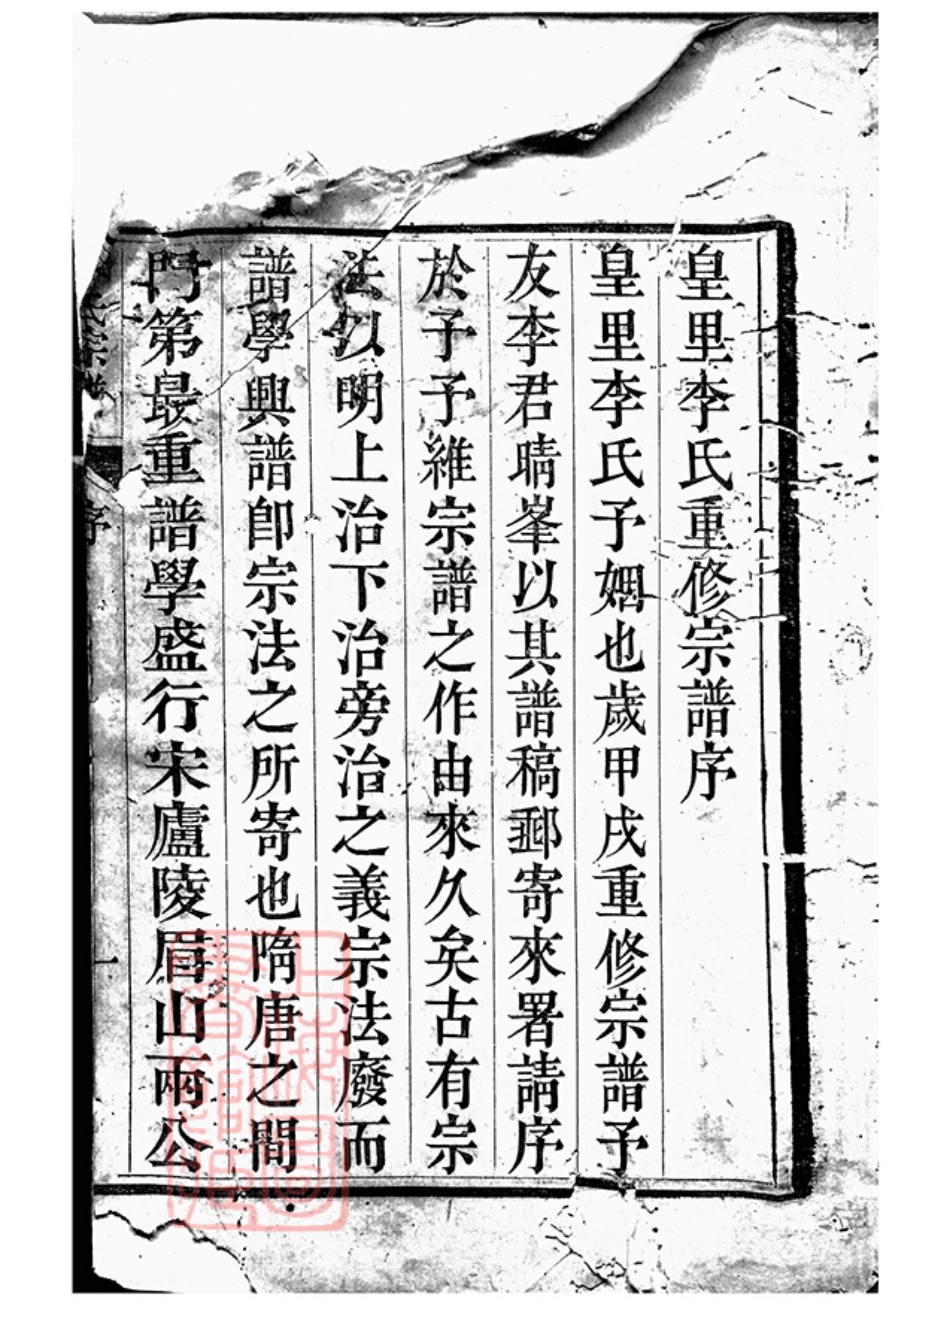 皇里李氏重修宗譜序
皇里李氏予姻也歲甲戌重修宗譜予
友李君晴峯以其譜稿郵寄來署請序
於予予維宗譜之作由來久矣古有宗
法以明上治下治旁治之義宗法廢而
譜學興譜卽宗法之所寄也隋唐之間
門第最重譜學盛行宋廬陵眉山兩公
宗譜
序
一